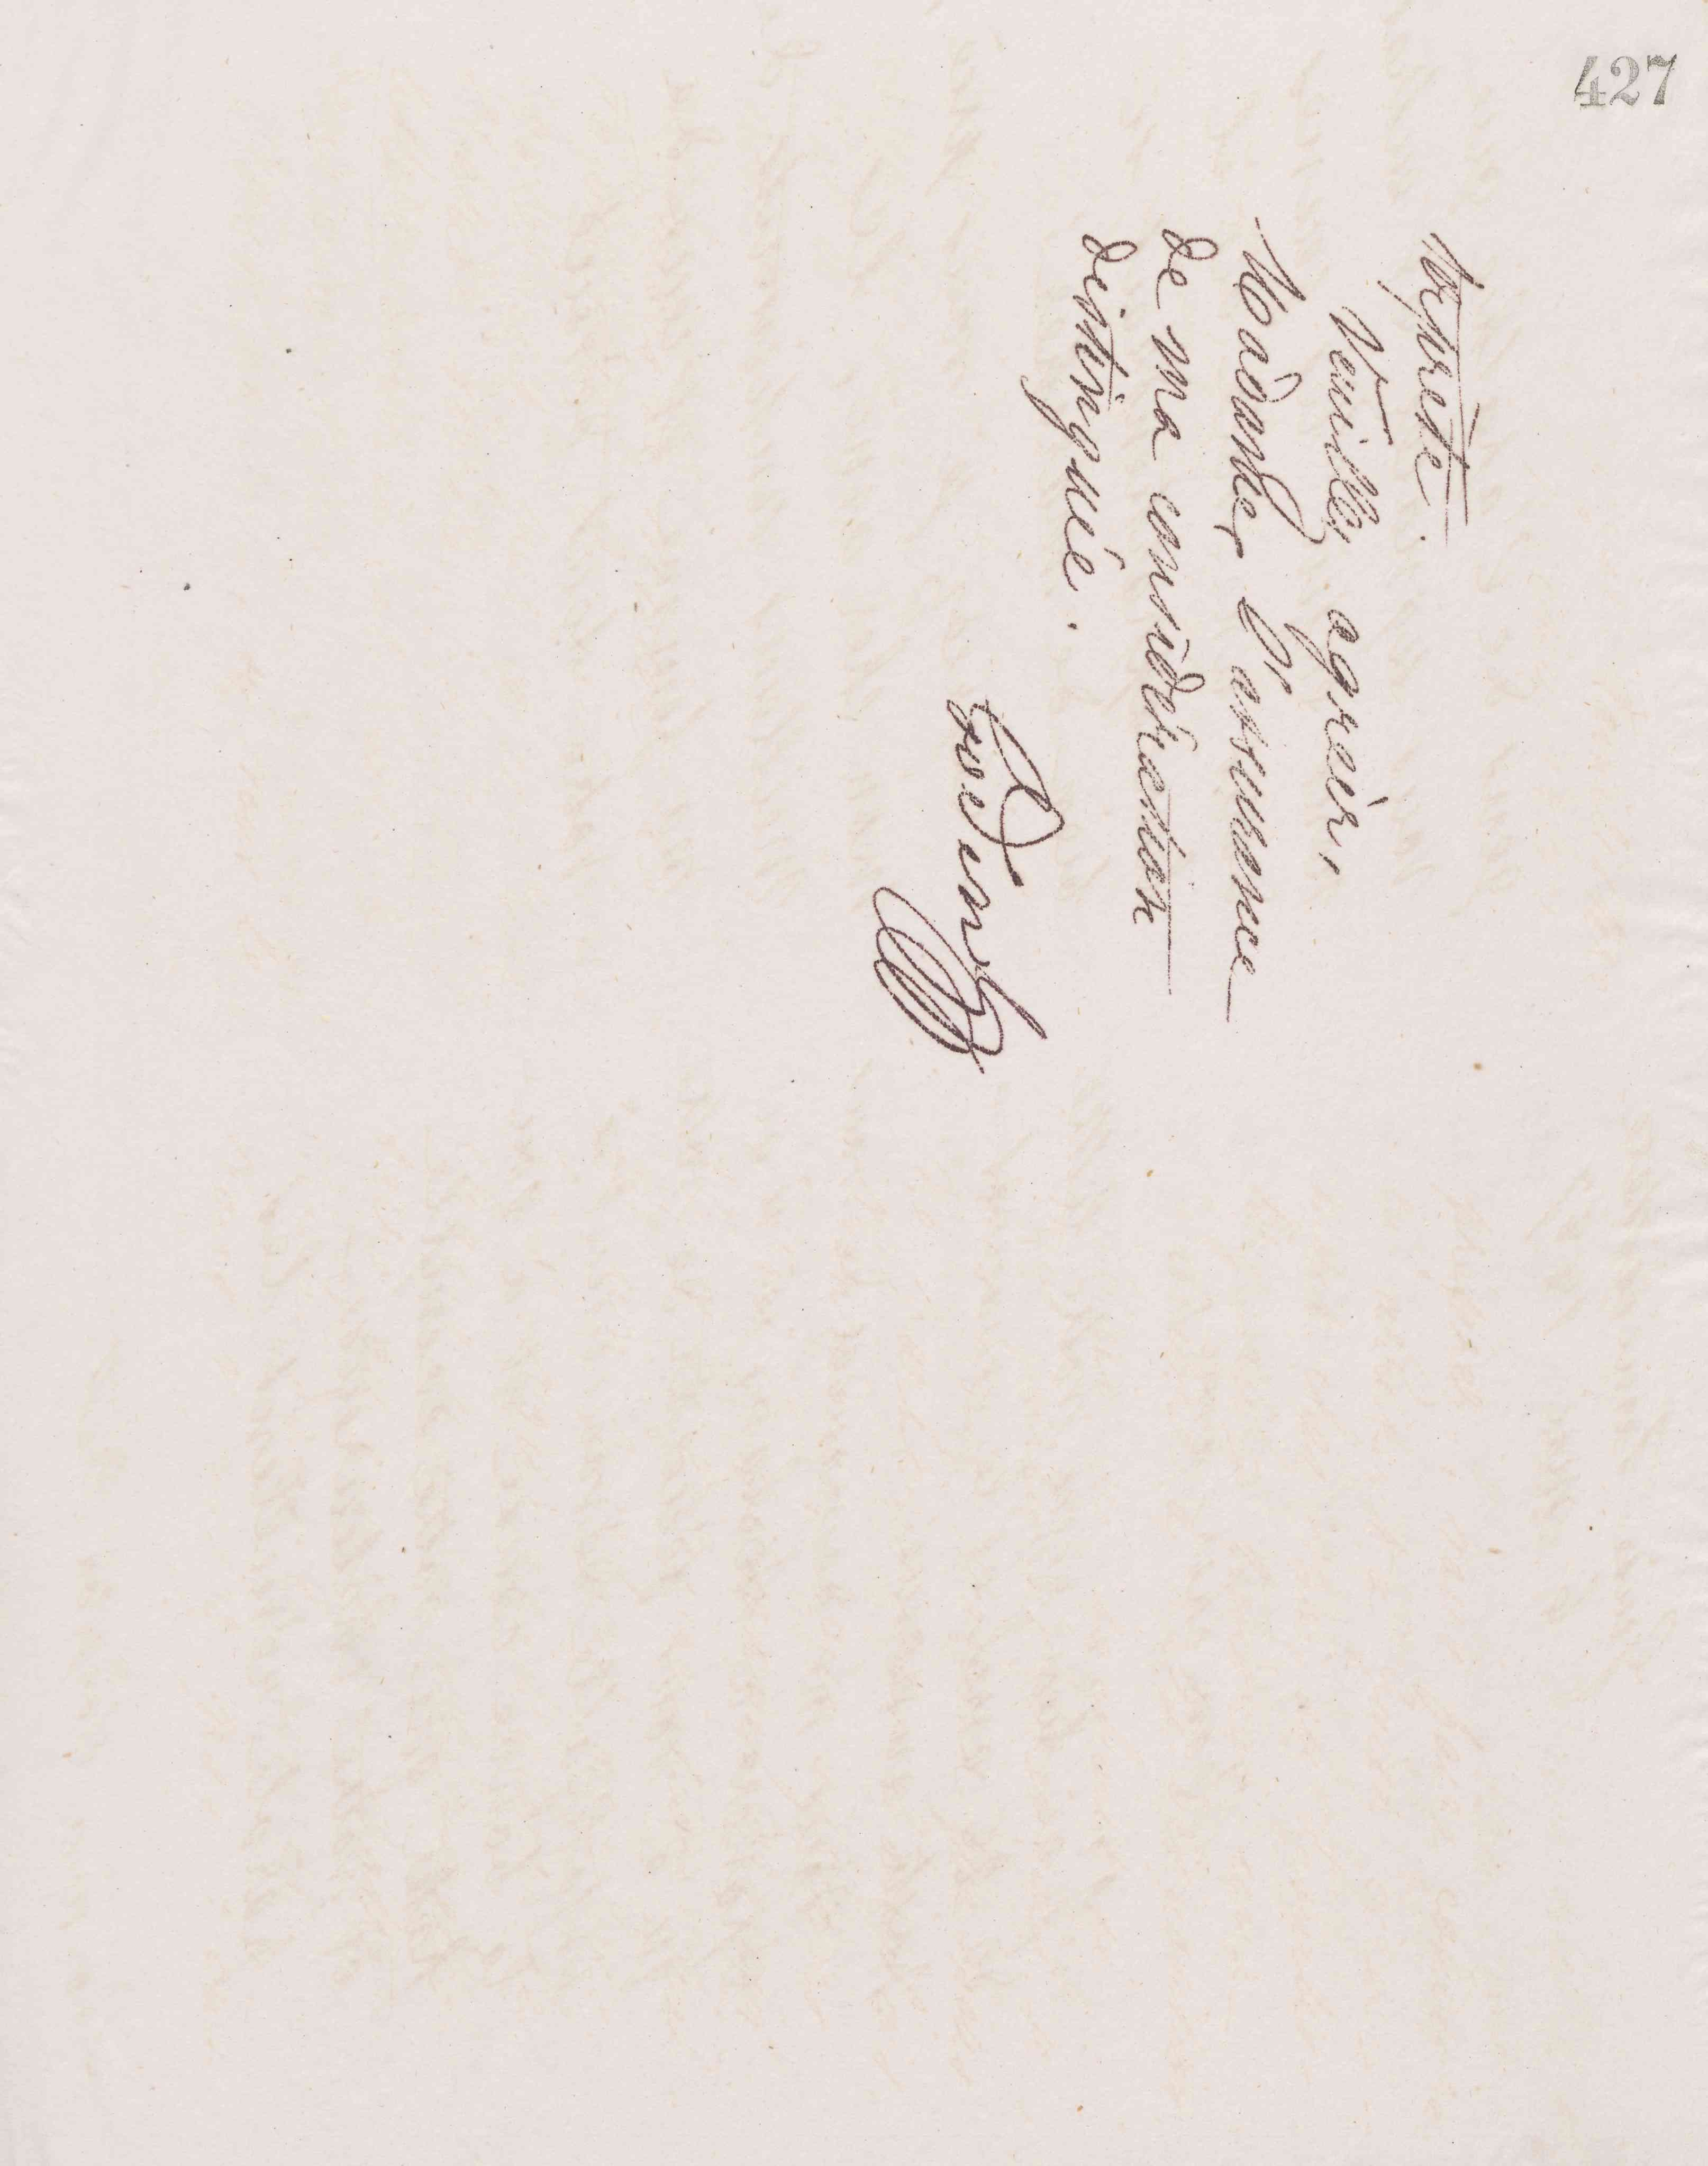 427
terprète.
Veuillez agréer,
Madame, l'assurance
de ma considération
distinguée.
Godin